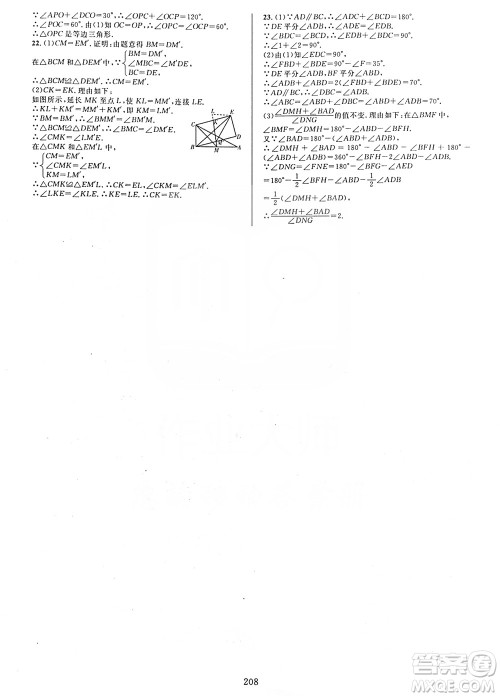 ∵∠APO+∠DCO=30°,∴∠OPC+∠OCP=60°.
∴△OPC是等边三角形.
22.(1)CM=EM′.证明:由题意得BM=DM′.
在△BCM和△DEM′中,∵{BM=DM′,
∠CBM=∠EDM′,
BC=DE,
∴△BCM≌△DEM′.∴CM=EM′.
(2)CK=EK.理由如下:
如图所示,延长MK至点L,使KL=MM′,连接LE.
∴KL+KM=MM′+KM,即KM′=LM′.
∵BM=BM′,∴∠BM′M=∠BMM′.
由(1)可知∠CMB=∠EM′D.
∴∠CMB+∠BMM′=∠EM′D+∠BM′M,
即∠CMK=∠EM′L.
在△CMK和△EM′L中,
∵{CM=EM′,
∠CMK=∠EM′L,
KM=LM′,
∴△CMK≌△EM′L.∴CK=EL,∠CKM=∠ELM′.
∴∠LKE=∠CKM,∴∠LKE=∠KLE.∴EL=EK.∴CK=EK.
23.(1)∵AD∥BC,∴∠ADC+∠BCD=180°.
∵DE平分∠ADB,∴∠ADE=∠EDB.
∵∠BDC=∠BCD,∴∠EDB+∠BDC=90°.
∴∠1+∠2=90°.
(2)由(1)知∠EDB+∠BDC=90°.
∴∠FBD+∠BDE=90°-∠F=35°.
∵DE平分∠ADB,BF平分∠ABD,
∴∠ADB+∠ABD=2(∠FBD+∠BDE)=70°.
∵AD∥BC,∴∠DBC=∠ADB.
∴∠ABC=∠ABD+∠DBC=∠ABD+∠ADB=70°.
(3)∠DMH+∠BAD/∠DNG的值不变.理由如下:在△BMF中,
∠BMF=∠DMH=180°-∠F-∠BFH,
又∵∠BAD=180°-(∠ABD+∠ADB),
∴∠DMH+∠BAD=180°-∠ABD-∠BFH+
180°-(∠ABD+∠ADB)=360°-∠BFH-2∠ABD-∠ADB.
∵∠DNG=∠FNE=180°-∠BFH-∠BFG-∠AED
=180°-1/2∠BFH-∠ABD-1/2∠ADB
=1/2(∠DMH+∠BAD).
∴∠DMH+∠BAD/∠DNG=2.
208
答案圈
MXQE.COM